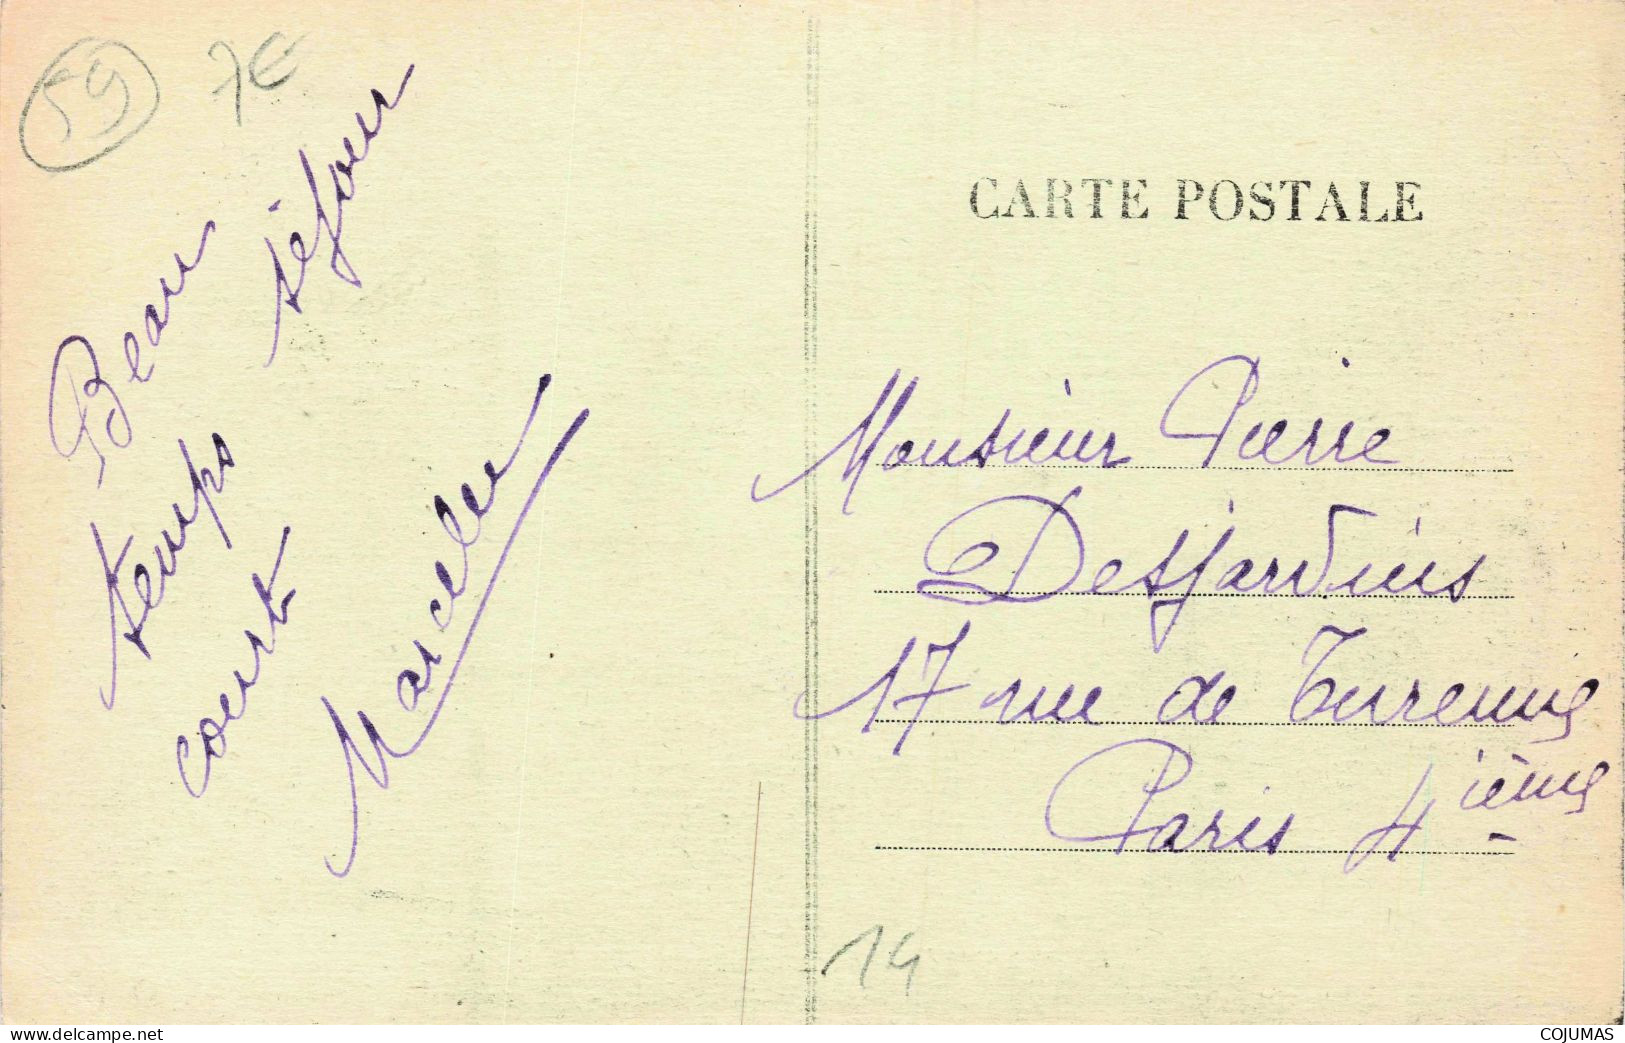 59 7€
Beau
temps séjour
court
Marcellin
CARTE POSTALE
Monsieur Pierre
Desjardins
17 rue de Turenne
Paris 4ième
14
www.delcampe.net
COJUMAS